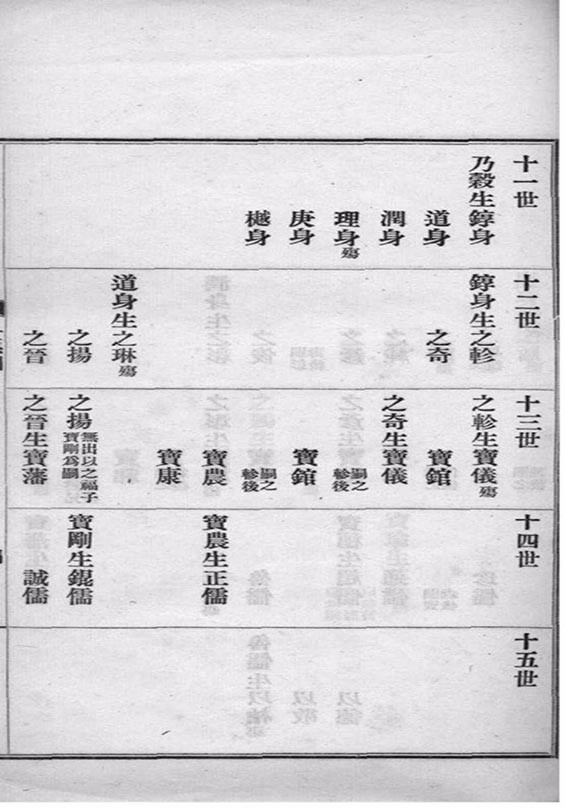 十一世
乃穀生錞身
道身
潤身
理身殤
庚身
樾身
十二世
錞身生之軫
之奇
道身生之琳殤
之揚
之晉
十三世
之軫生寶儀殤
寶錧
之奇生寶儀
嗣之
軫後
寶錧
嗣之
軫後
寶農
寶康
之揚無出以之福子
寶剛爲嗣
之晉生寶藩
十四世
寶農生正儒
寶剛生錕儒
誠儒
十五世